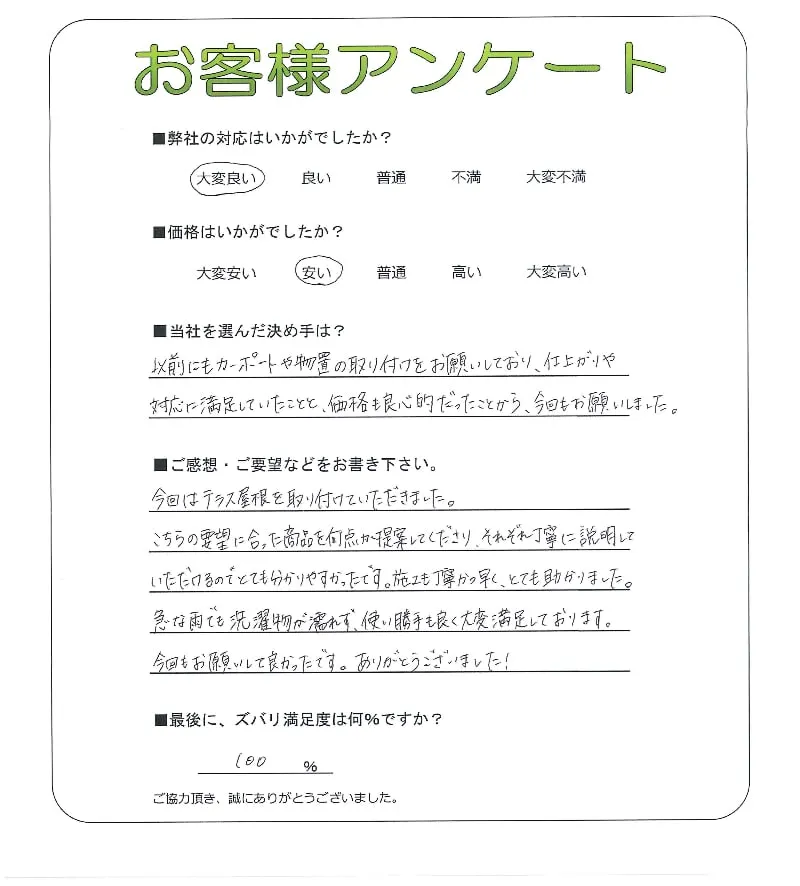 お客様アンケート
■弊社の対応はいかがでしたか？
大変良い 良い 普通 不満 大変不満
■価格はいかがでしたか？
大変安い 安い 普通 高い 大変高い
■当社を選んだ決め手は？
以前にもカーポートや物置の取り付けをお願いしており、仕上がりや
対応に満足していたことと、価格も良心的だったことから、今回もお願いしました。
■ご感想・ご要望などをお書き下さい。
今回はテラス屋根を取り付けていただきました。
こちらの要望に合った商品を何点か提案してくださり、それぞれ丁寧に説明して
いただけるのでとても分かりやすかったです。施工も丁寧かつ早く、とても助かりました。
急な雨でも洗濯物が濡れず、使い勝手も良く大変満足しております。
今回もお願いして良かったです。ありがとうございました！
■最後に、ズバリ満足度は何％ですか？
100 ％
ご協力頂き、誠にありがとうございました。